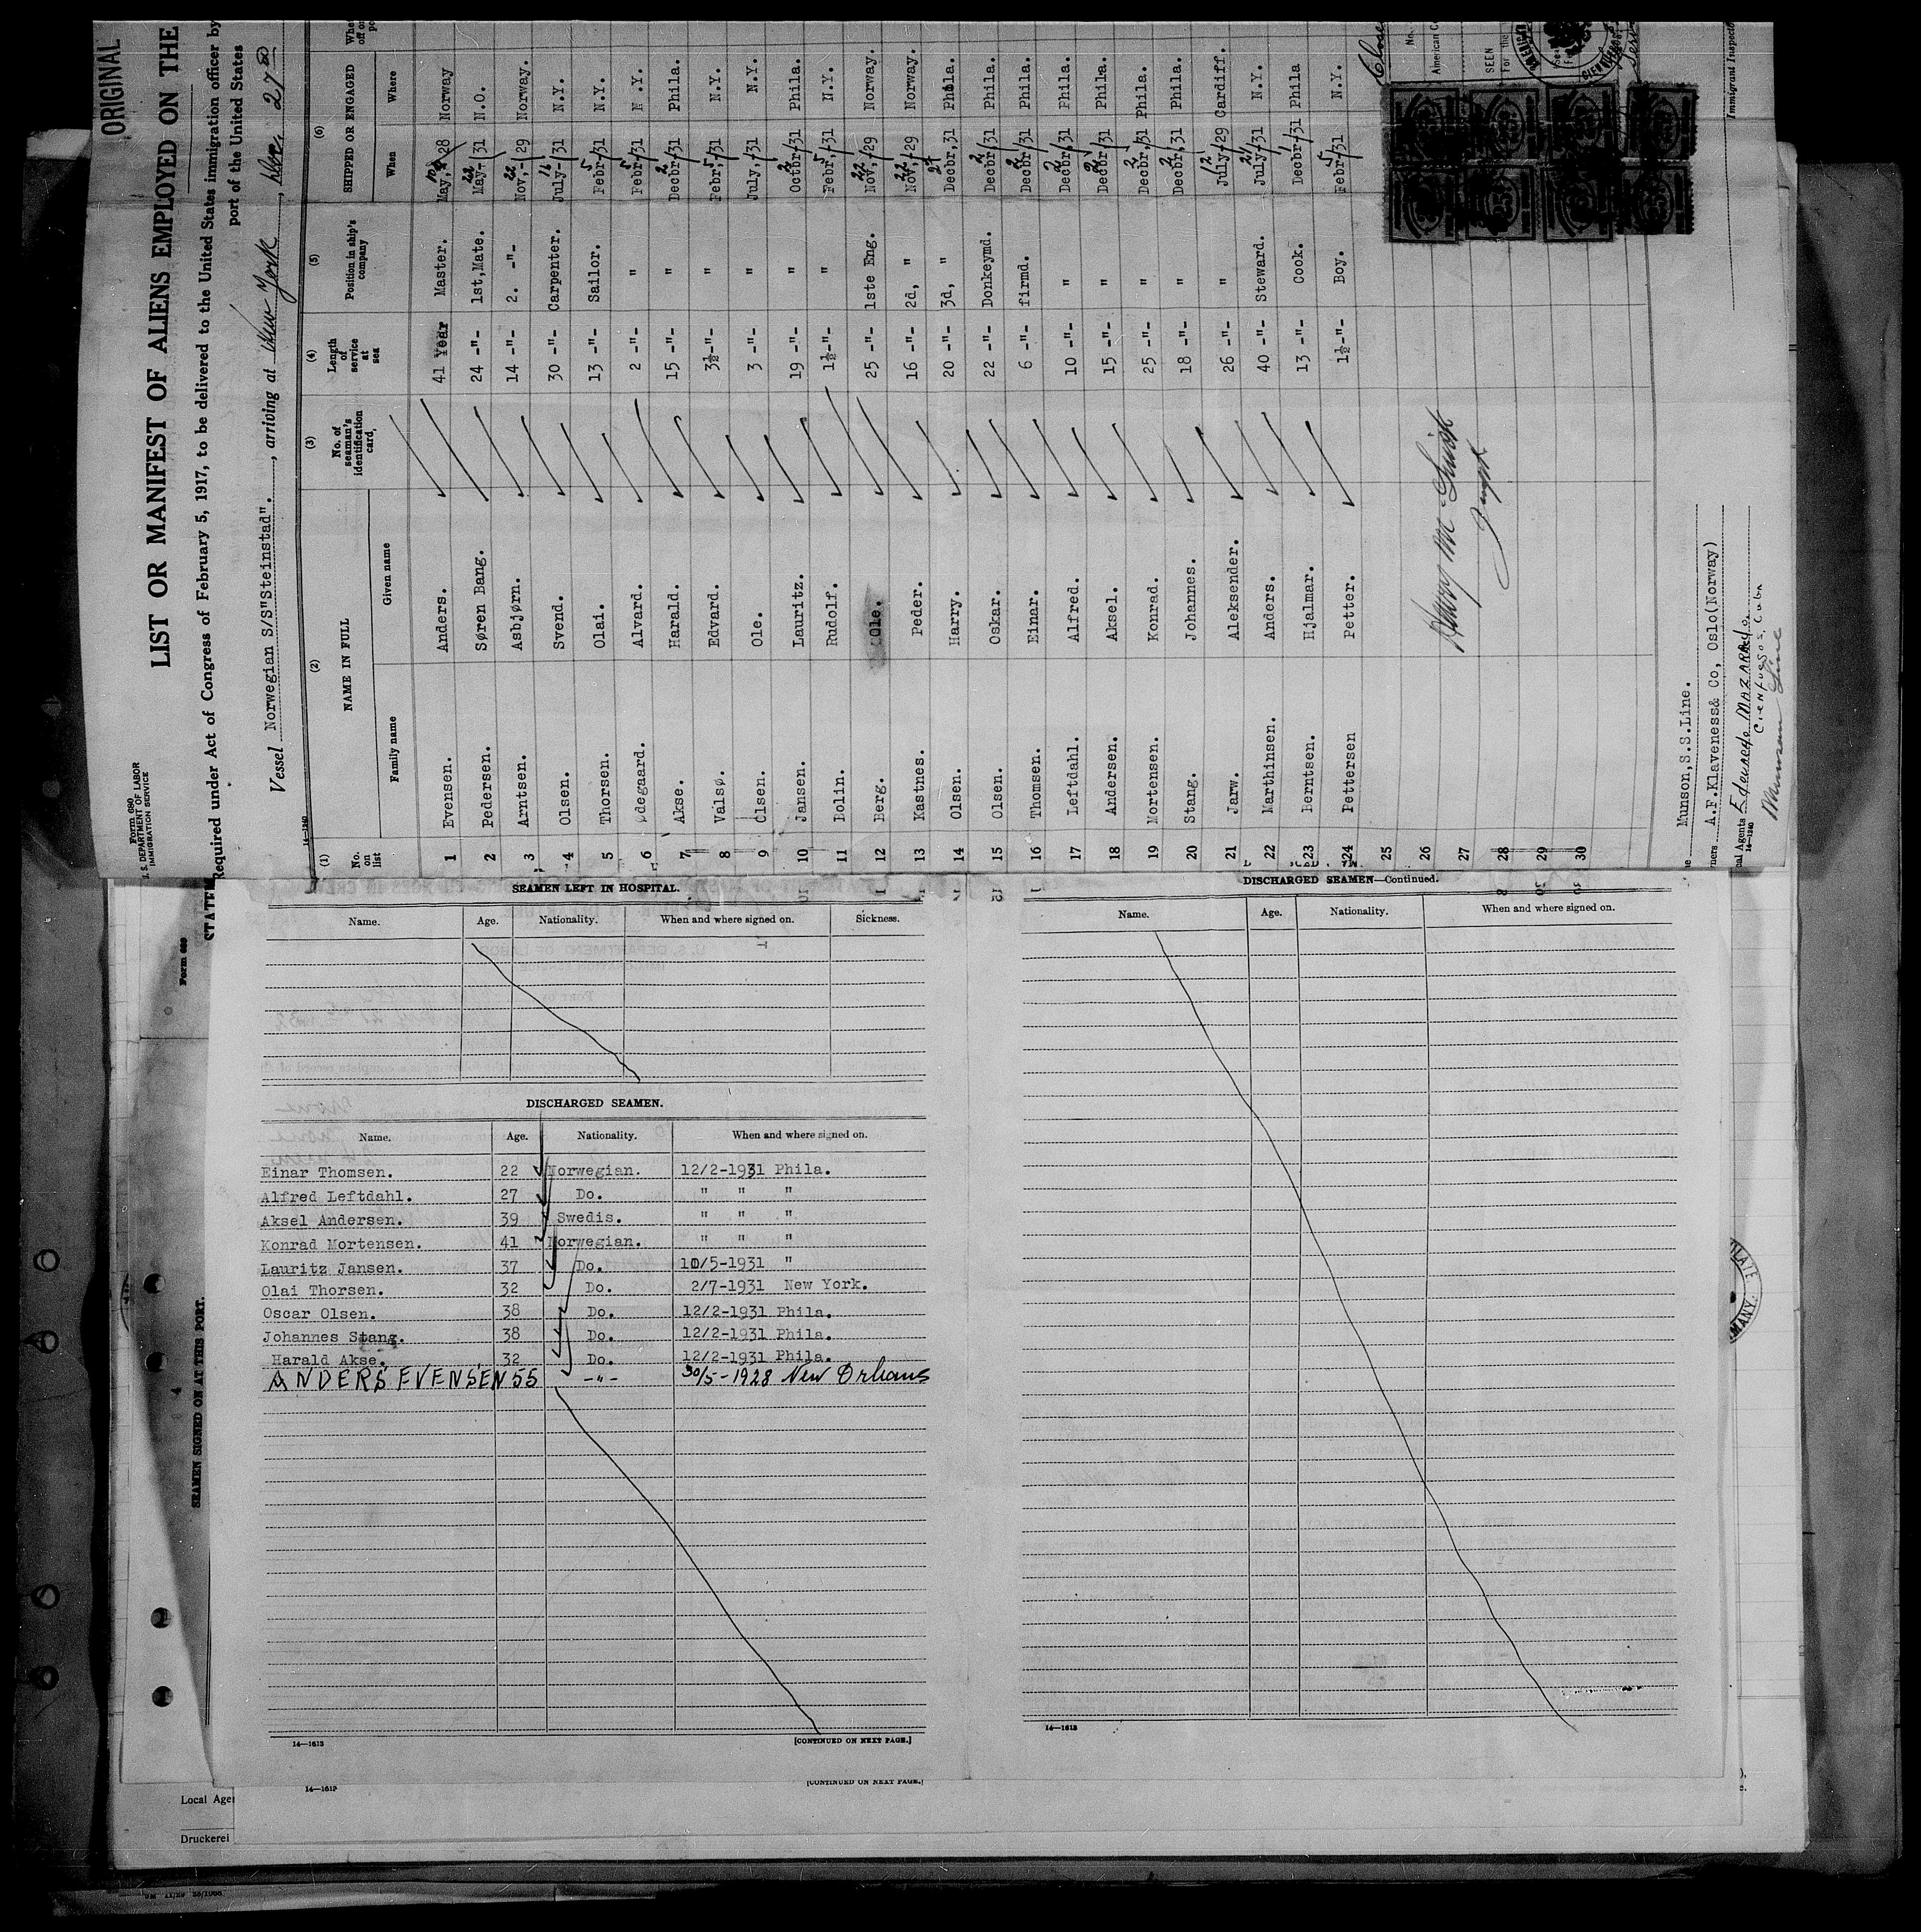 ORIGINAL
Form 680
U. S. DEPARTMENT OF LABOR
IMMIGRATION SERVICE
LIST OR MANIFEST OF ALIENS EMPLOYED ON THE
Required under Act of Congress of February 5, 1917, to be delivered to the United States immigration officer by
port of the United States
Vessel Norwegian S/S"Steinstad". , arriving at New York
14—1240
(1) (2) (3) (4) (5) (6)
No. on list
NAME IN FULL
Family name Given name
No. of seaman's identification card,
Length of service at sea
Position in ship's company
SHIPPED OR ENGAGED
When Where
1 Evensen. Anders. 41 Year Master. May, 28 Norway
2 Pedersen. Søren Bang. 24 -"- 1st,Mate. May- 31 N.O.
3 Arntsen. Asbjørn. 14 -"- 2. -"- 22 Nov,- 29 Norway.
4 Olsen. Svend. 30 -"- Carpenter. July- 31 N.Y.
5 Thorsen. Olai. 13 -"- Sailor. 5 Febr- 31 N.Y.
6 Ødegaard. Alvard. 2 -"- " 5 Febr- 31 N.Y.
7 Akse. Harald. 15 -"- " 2 Decbr- 31 Phila.
8 Valsø. Edvard. 3½-"- " 5 Febr, 31 N.Y.
9 Olsen. Ole. 3 -"- " July,- 31 N.Y.
10 Jansen. Lauritz. 19 -"- " Octbr 31 Phila.
11 Bolin. Rudolf. 1½-"- " 5 Febr, 31 N.Y.
12 Berg. Ole. 25 -"- 1ste Eng. 22 Nov,- 29 Norway.
13 Kastnes. Peder. 16 -"- 2d, " 22 Nov,- 29 Norway.
14 Olsen. Harry. 20 -"- 3d, " Decbr, 31 Phila.
15 Olsen. Oskar. 22 -"- Donkeymd. 2 Decbr 31 Phila.
16 Thomsen. Einar. 6 -"- firmd. 2 Decbr 31 Phila.
17 Leftdahl. Alfred. 10 -"- " 2 Decbr, 31 Phila.
18 Andersen. Aksel. 15 -"- " 2 Decbr, 31 Phila.
19 Mortensen. Konrad. 25 -"- " 2 Decbr, 31 Phila.
20 Stang. Johannes. 18 -"- " 2 Decbr, 31 Phila.
21 Jarw. Aleksender. 26 -"- " 12 July- 29 Cardiff.
22 Marthinsen. Anders. 40 -"- Steward. July- 31 N.Y.
23 Berntsen. Hjalmar. 13 -"- Cook. Decbr 31 Phila
24 Pettersen Petter. 1½-"- Boy. 5 Febr- 31 N.Y.
25
26
27
28
29
30
Munson,S.S.Line.
A.F.Klaveness& Co, Oslo(Norway)
cal Agents
CIENFUEGOS, Cuba
Munson Line
14—1240
No.
American C
SEEN
For the
Immigrant Inspecto
Form 689
STATEM
SEAMEN SIGNED ON AT THIS PORT.
SEAMEN LEFT IN HOSPITAL.
Name. Age. Nationality. When and where signed on. Sickness.
DISCHARGED SEAMEN.
Name. Age. Nationality. When and where signed on.
Einar Thomsen. 22 Norwegian. 12/2-1931 Phila.
Alfred Leftdahl. 27 Do. " " "
Aksel Andersen. 39 Swedis. " " "
Konrad Mortensen. 41 Norwegian. " " "
Lauritz Jansen. 37 Do. 10/5-1931 "
Olai Thorsen. 32 Do. 2/7-1931 New York.
Oscar Olsen. 38 Do. 12/2-1931 Phila.
Johannes Stang. 38 Do. 12/2-1931 Phila.
Harald Akse. 32 Do. 12/2-1931 Phila.
ANDERS EVENSEN 55 -"- 30/5-1928 New Orleans
14—1613 [CONTINUED ON NEXT PAGE.]
DISCHARGED SEAMEN—Continued.
Name. Age. Nationality. When and where signed on.
14—1613
14—1613 [CONTINUED ON NEXT PAGE.]
Local Agen
Druckerei